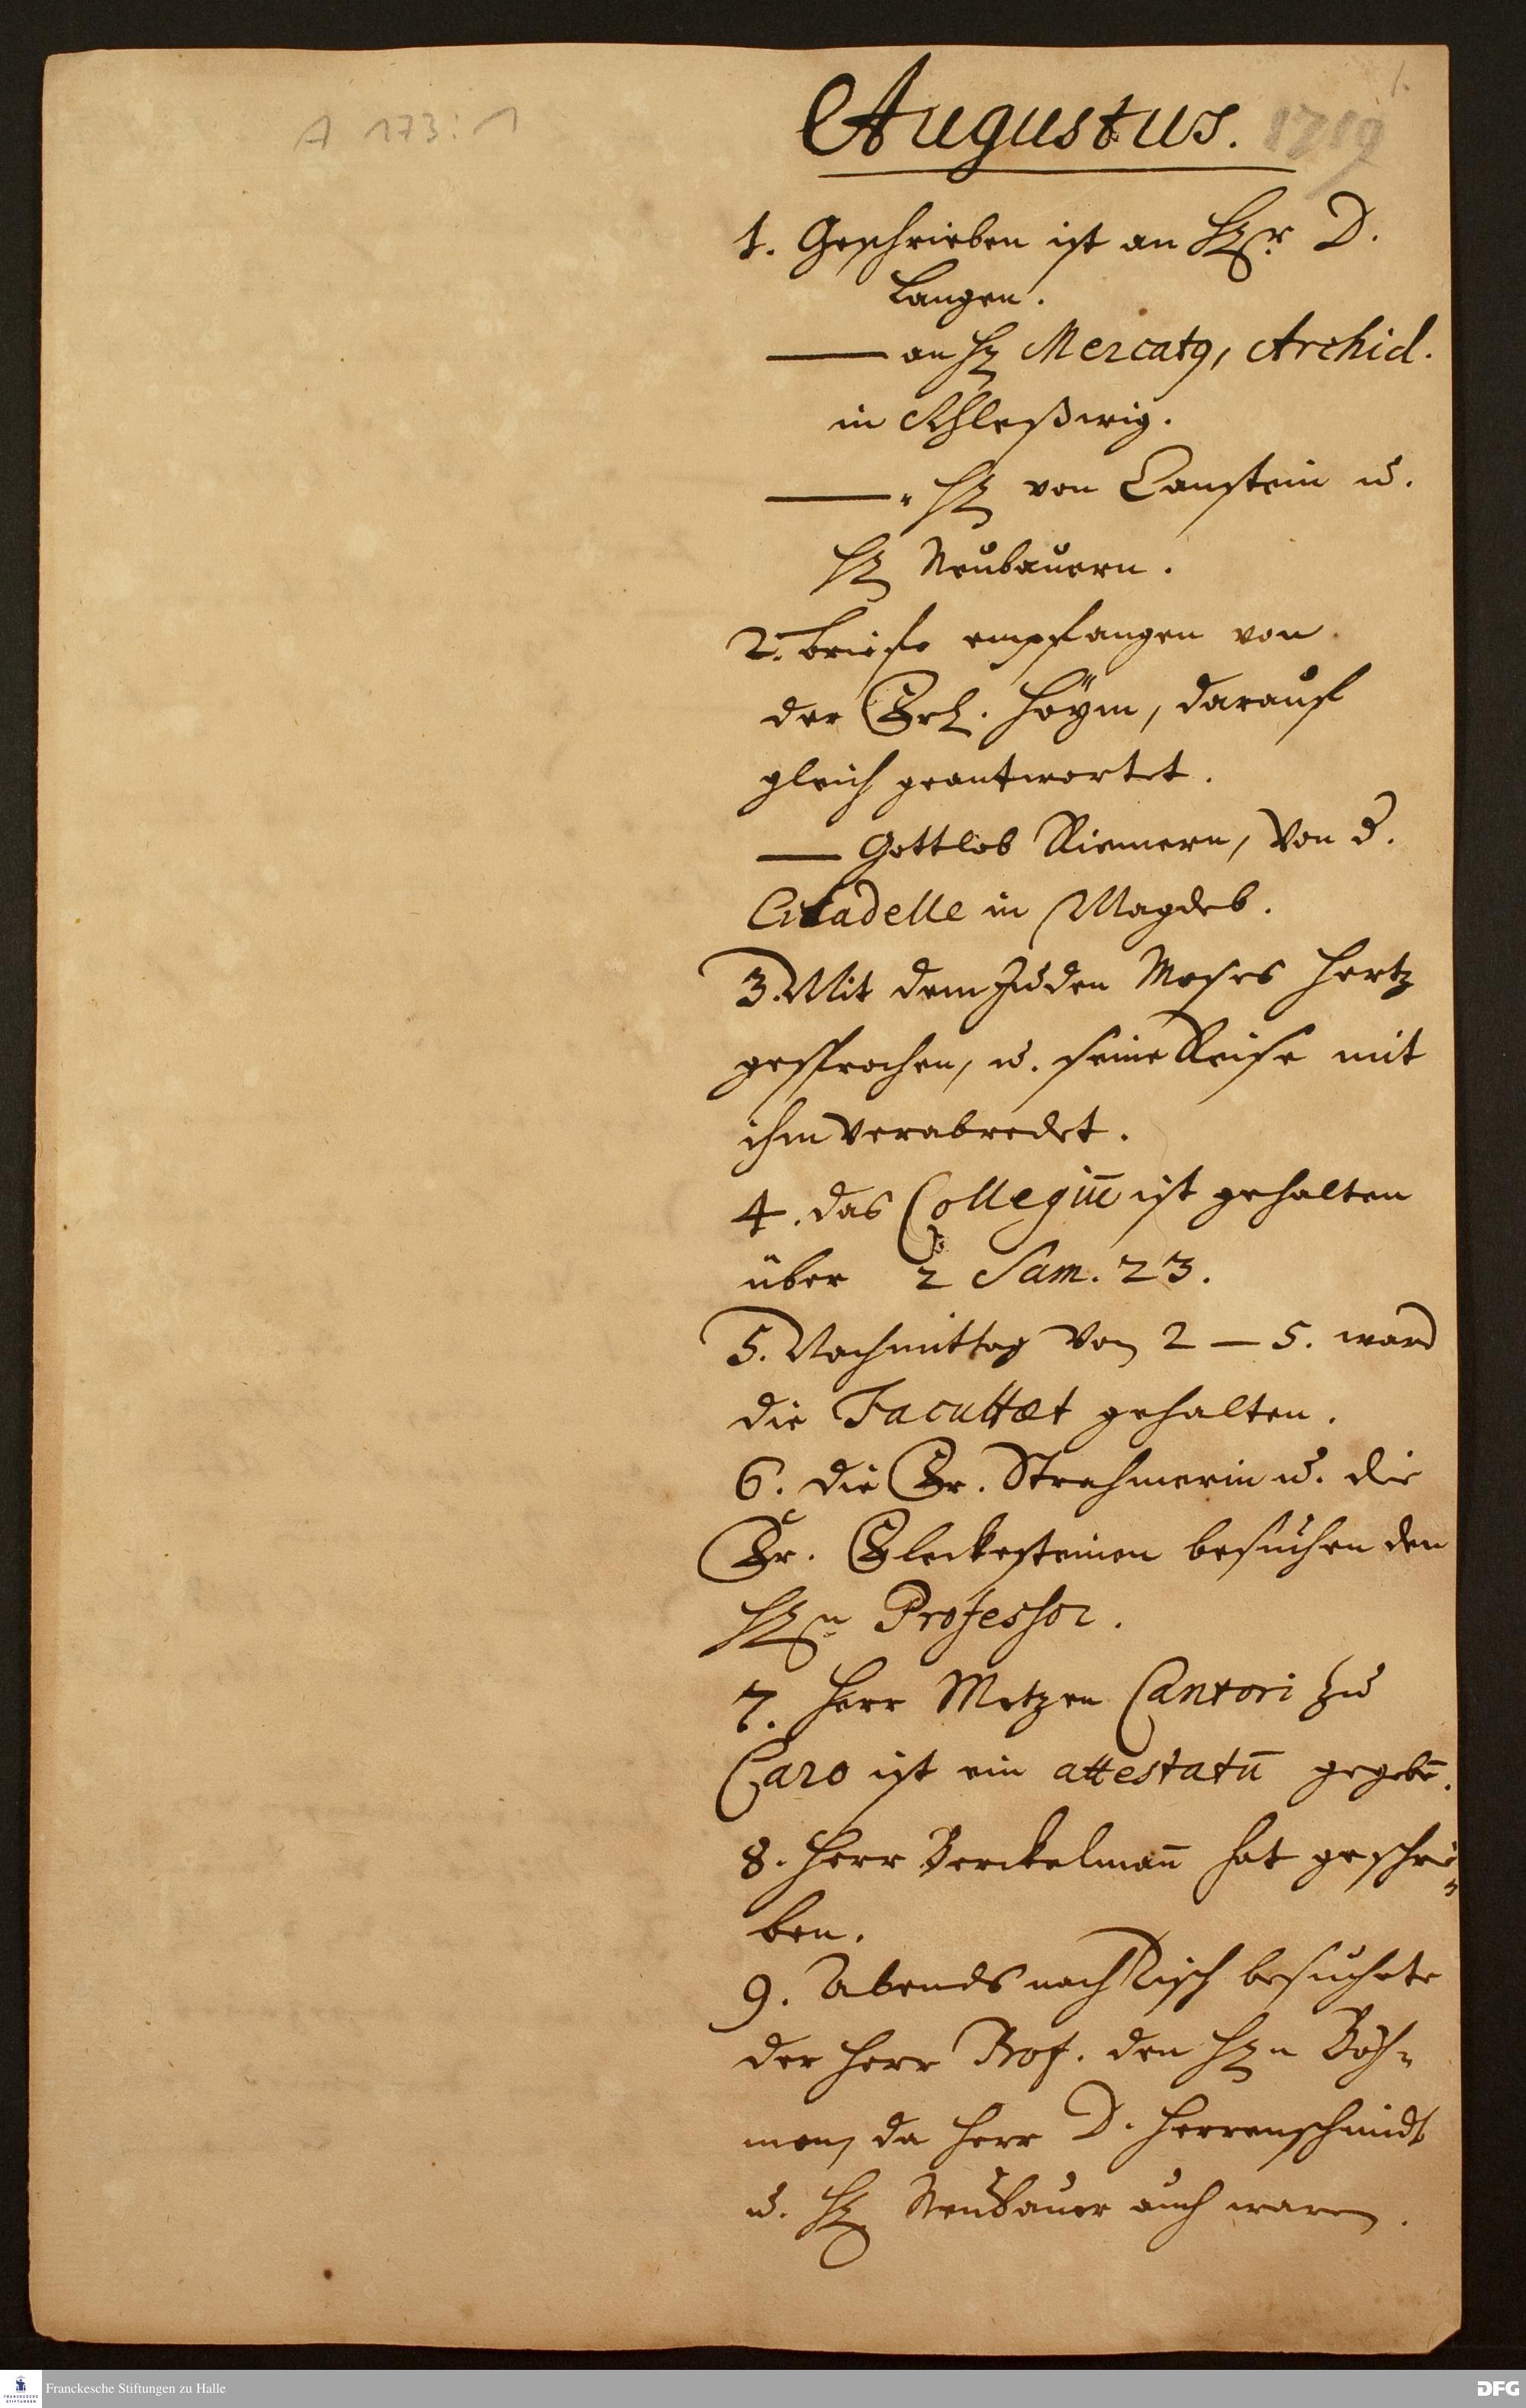 A 173:1
1.
Augustus. 1719
1. Geschrieben ist an Hr D.
Langen.
— an H. Mercatq, Archid.
in Schleßwig.
— " H. von Canstein u.
H. Neubauern.
2. briefe empfangen von
der Frl. Höym, darauf
gleich geantwortet.
— Gottlob Riemern, von d.
Citadelle in Magdeb.
3. Mit dem Juden Moses Hertz
gesprochen, u. seine Reise mit
ihm verabredet.
4. das Collegiū ist gehalten
über 2 Sam. 23.
5. Nachmittag von 2 — 5. ward
die Facultæt gehalten.
6. die Fr. Strahmerin u. die
Fr. besuchen den
Hn Professor.
7. Herr Metzen Cantori zu
Caro ist ein attestatū gegebē.
8. Herr Berckelmañ hat geschrie=
ben.
9. Abends nach Tisch besuchete
der Herr Prof. den Hn Böh=
men, da Herr D. Herrnschmidt
u. H. Neubauer auch waren.
Franckesche Stiftungen zu Halle
FRANCKESCHE
STIFTUNGEN
DFG